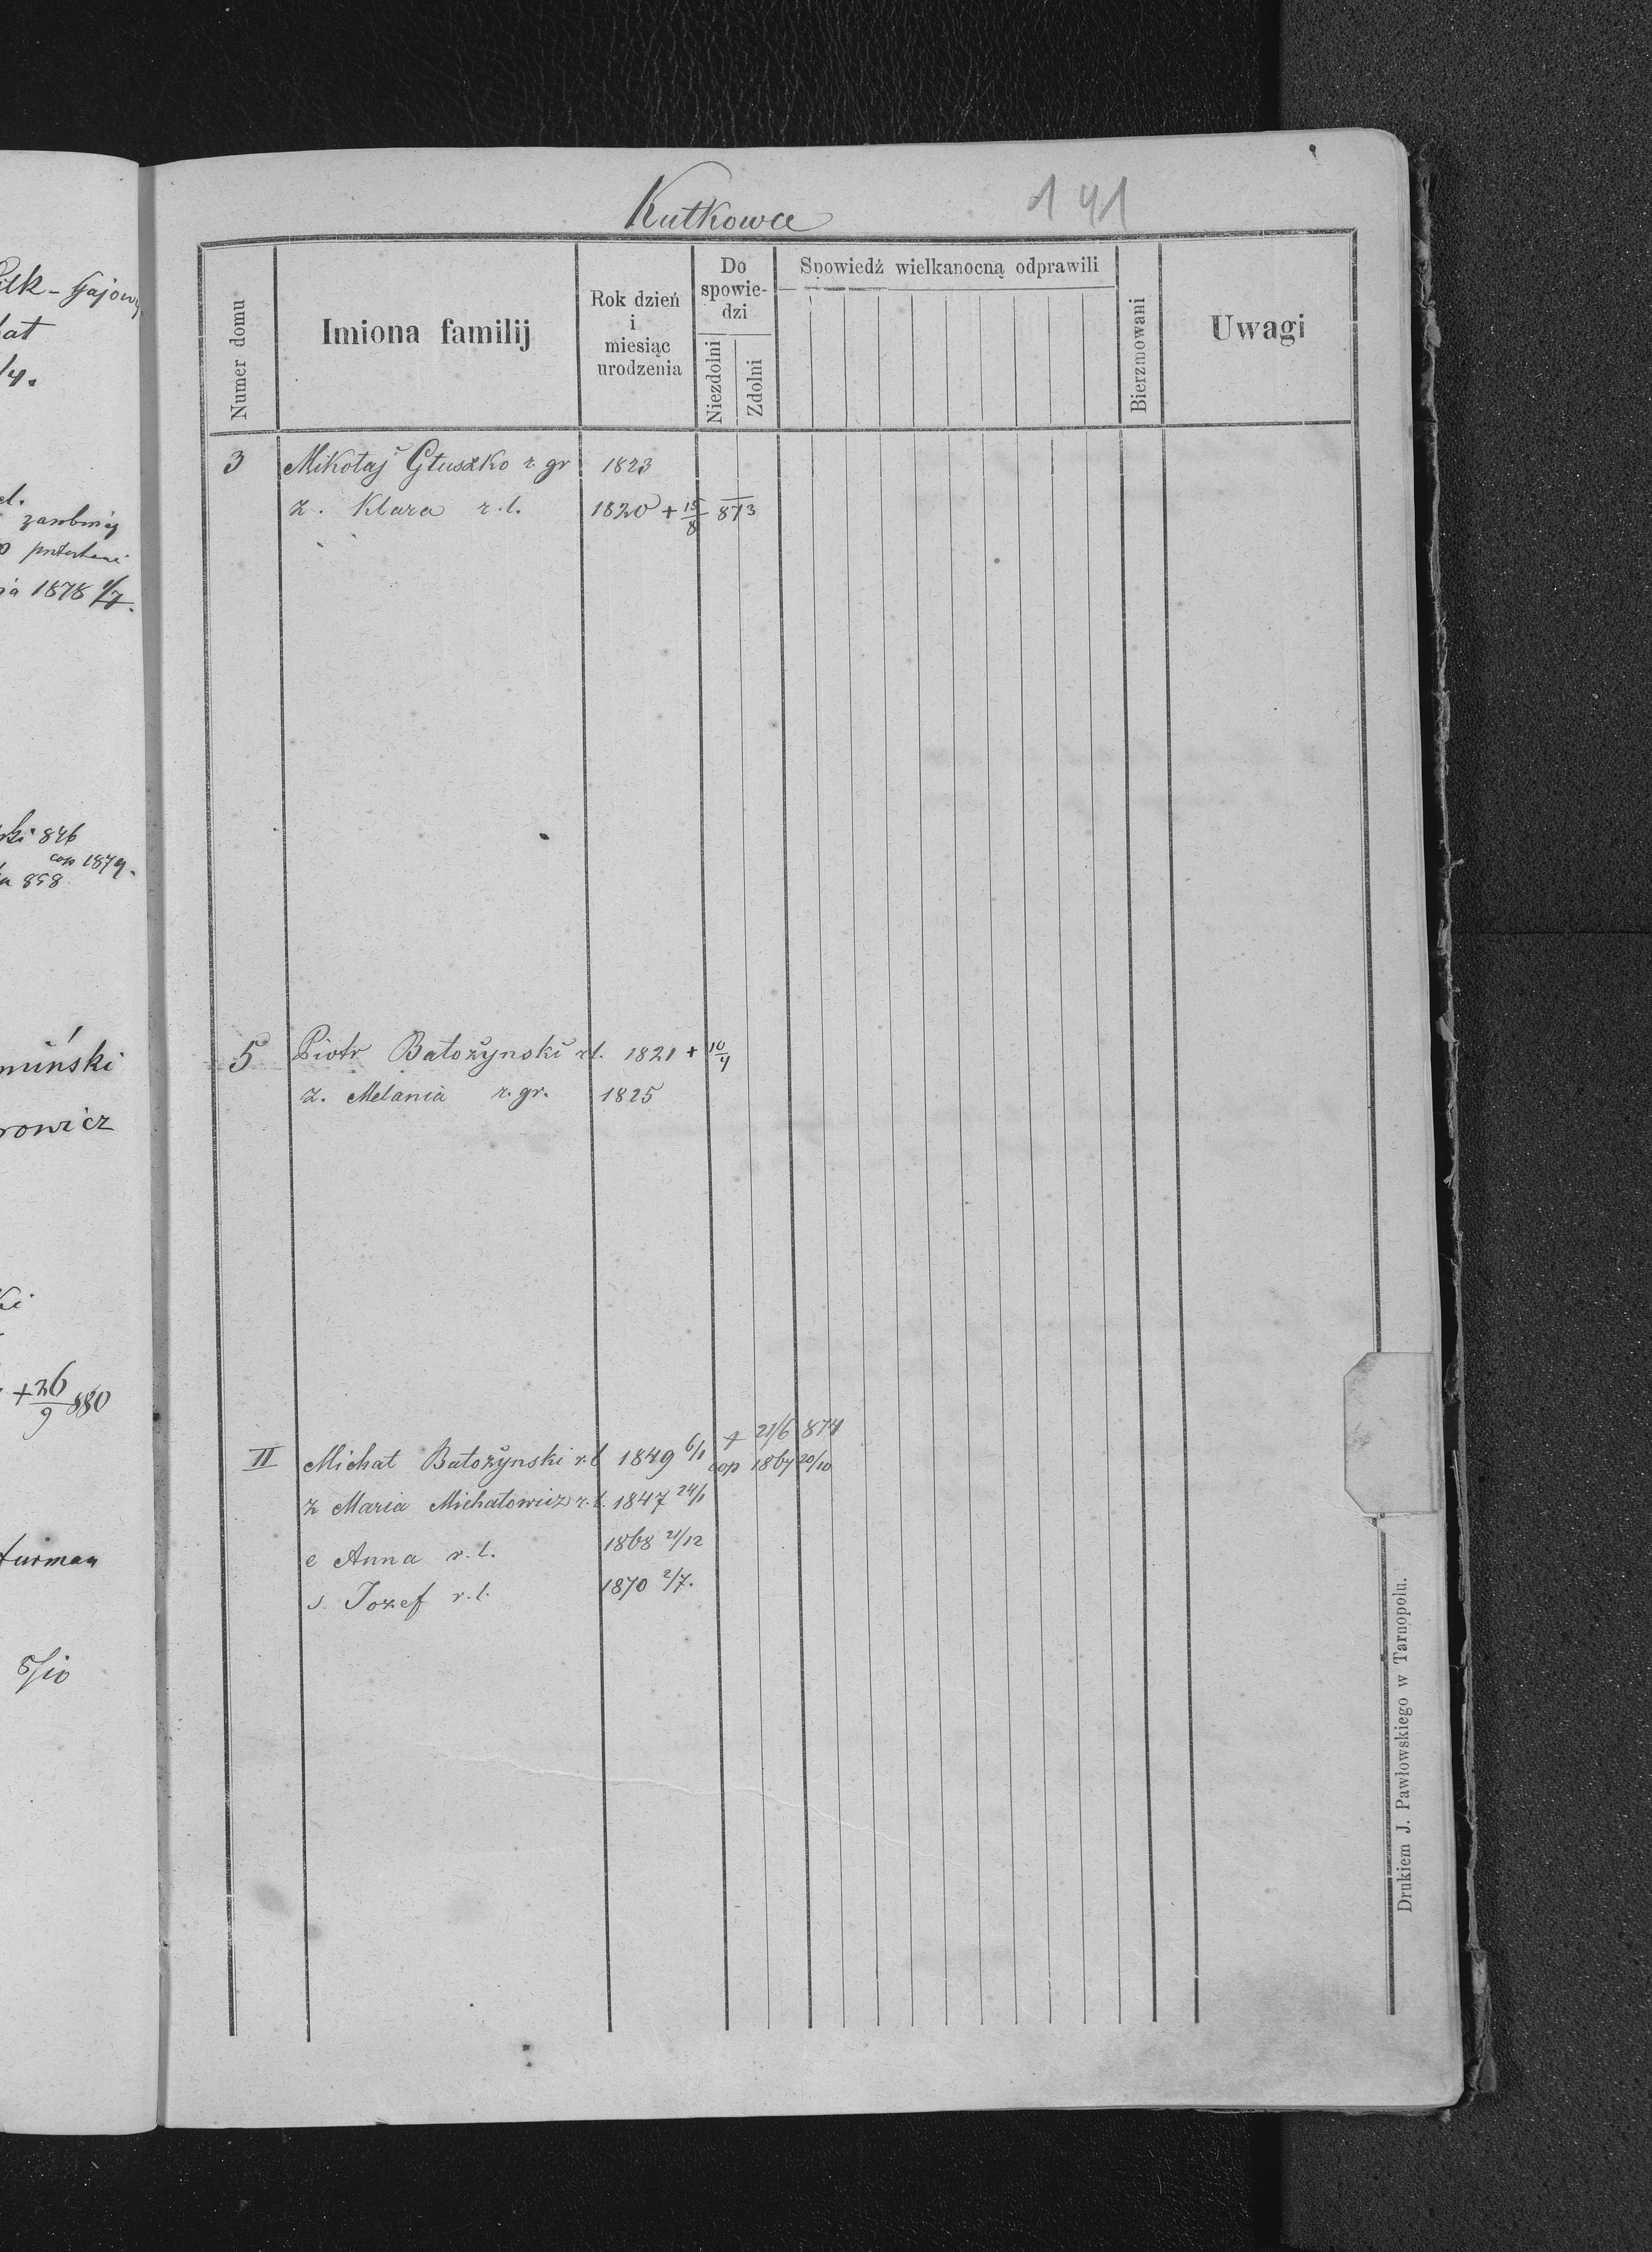 Kutkowce 141
Numer domu
Imiona familij
Rok dzień i miesiąc urodzenia
Do spowiedzi
Niezdolni
Zdolni
Spowiedź wielkanocną odprawili
Bierzmowani
Uwagi
3 Mikołaj Głuszko r. gr 1823
ż. Klara r. l. 1820 + 15/8 873
5 Piotr Batożynski r.l. 1821 + 10/4
ż. Melania r. gr. 1825
+ 21/6 874
II Michał Batożynski r.l 1849 6/1 cop 1867 20/10
ż Maria Michałowicz r. l. 1847 24/1
c Anna r. l. 1868 21/12
s. Jozef r. l. 1870 2/7.
Drukiem J. Pawłowskiego w Tarnopolu.
Gajowy
1878
846
cop 1879.
858
miński
rowicz
ki
+ 26/9 880
furman
5/10